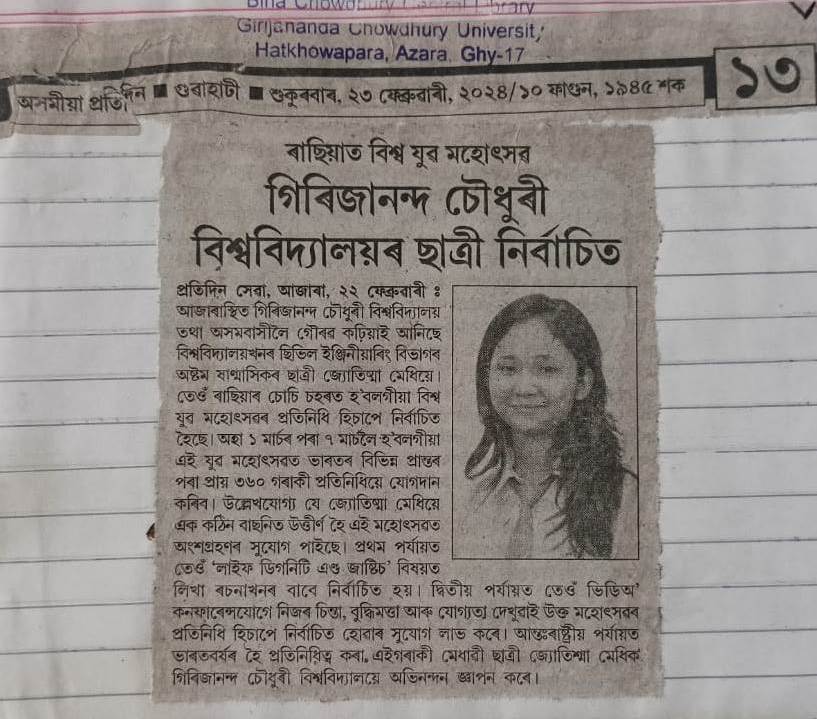 Bina Chowdhury Central Library
Girijananda Chowdhury University
Hatkhowapara, Azara, Ghy-17
অসমীয়া প্ৰতিদিন ■ গুৱাহাটী ■ শুকুৰবাৰ, ২৩ ফেব্ৰুৱাৰী, ২০২৪/১০ ফাগুন, ১৯৪৫ শক
১৩
ৰাছিয়াত বিশ্ব যুৱ মহোৎসৱ
গিৰিজানন্দ চৌধুৰী
বিশ্ববিদ্যালয়ৰ ছাত্ৰী নিৰ্বাচিত
প্ৰতিদিন সেৱা, আজাৰা, ২২ ফেব্ৰুৱাৰী :
আজাৰাস্থিত গিৰিজানন্দ চৌধুৰী বিশ্ববিদ্যালয়
তথা অসমবাসীলৈ গৌৰৱ কঢ়িয়াই আনিছে
বিশ্ববিদ্যালয়খনৰ ছিভিল ইঞ্জিনীয়াৰিং বিভাগৰ
অষ্টম ষাণ্মাসিকৰ ছাত্ৰী জ্যোতিষ্মা মেধিয়ে।
তেওঁ ৰাছিয়াৰ চোচি চহৰত হ'বলগীয়া বিশ্ব
যুৱ মহোৎসৱৰ প্ৰতিনিধি হিচাপে নিৰ্বাচিত
হৈছে। অহা ১ মাৰ্চৰ পৰা ৭ মাৰ্চলৈ হ'বলগীয়া
এই যুৱ মহোৎসৱত ভাৰতৰ বিভিন্ন প্ৰান্তৰ
পৰা প্ৰায় ৩৬০ গৰাকী প্ৰতিনিধিয়ে যোগদান
কৰিব। উল্লেখযোগ্য যে জ্যোতিষ্মা মেধিয়ে
এক কঠিন বাছনিত উত্তীৰ্ণ হৈ এই মহোৎসৱত
অংশগ্ৰহণৰ সুযোগ পাইছে। প্ৰথম পৰ্যায়ত
তেওঁ 'লাইফ ডিগনিটি এণ্ড জাষ্টিচ' বিষয়ত
লিখা ৰচনাখনৰ বাবে নিৰ্বাচিত হয়। দ্বিতীয় পৰ্যায়ত তেওঁ ভিডিঅ'
কনফাৰেন্সযোগে নিজৰ চিন্তা, বুদ্ধিমত্তা আৰু যোগ্যতা দেখুৱাই উক্ত মহোৎসৱৰ
প্ৰতিনিধি হিচাপে নিৰ্বাচিত হোৱাৰ সুযোগ লাভ কৰে। আন্তঃৰাষ্ট্ৰীয় পৰ্যায়ত
ভাৰতবৰ্ষৰ হৈ প্ৰতিনিধিত্ব কৰা, এইগৰাকী মেধাৱী ছাত্ৰী জ্যোতিষ্মা মেধিক
গিৰিজানন্দ চৌধুৰী বিশ্ববিদ্যালয়ে অভিনন্দন জ্ঞাপন কৰে।